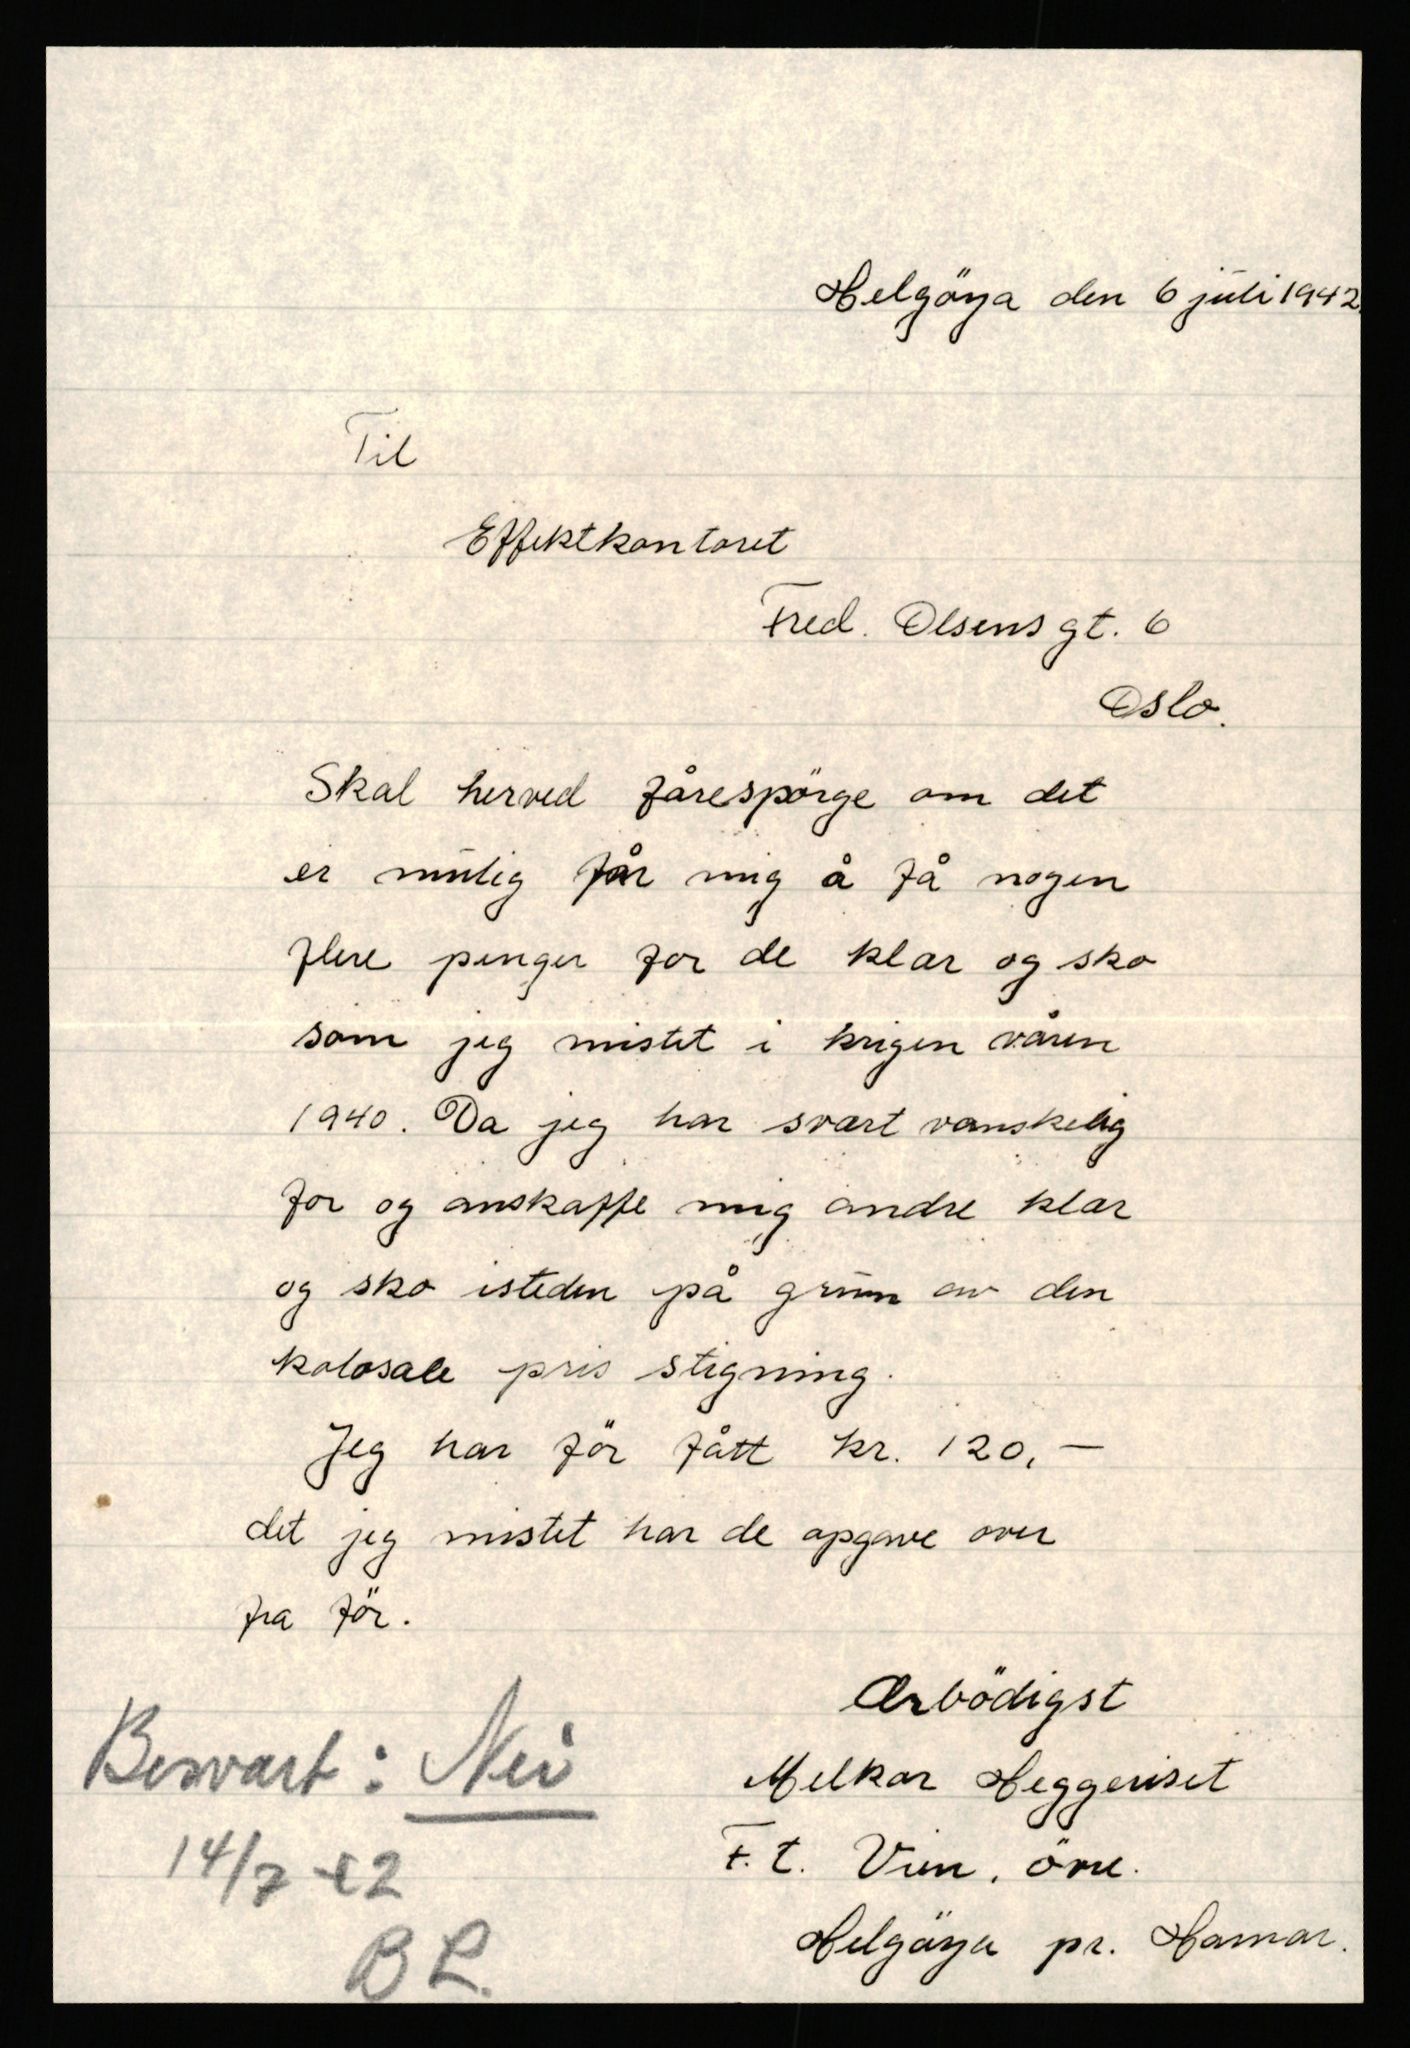 Helgöya den 6 juli 1942.
Til
Effektkontoret
Fred. Olsens gt. 6
Oslo.
Skal herved fårespörge om det
er mulig får mig å få nogen
flere penger for de klær og sko
som jeg mistet i krigen våren
1940. Da jeg har svært vanskelig
for og anskaffe mig andre klær
og sko isteden på grunn av den
kolosale pris stigning.
Jeg har för fått kr. 120,-
det jeg mistet har de opgave over
fra för.
Ærbödigst
Melkor Heggeriset
F. t. Vien, övre.
Helgöya pr. Hamar.
Besvart: Nei
14/7 42
BL.